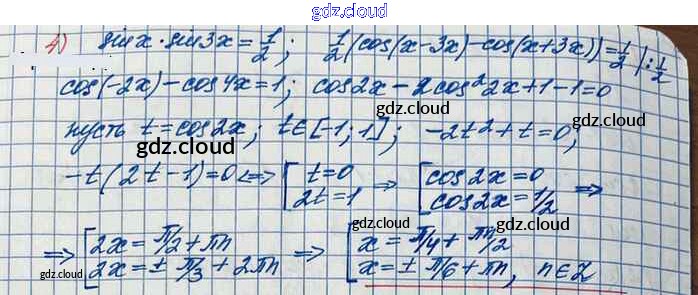 gdz.cloud
4) sinx·sin3x=1/2; 1/2(cos(x-3x)-cos(x+3x))=1/2 |:1/2
cos(-2x)-cos4x=1; cos2x-2cos²2x+1-1=0
gdz.cloud
пусть t=cos2x; t∈[-1;1]; -2t²+t=0;
gdz.cloud gdz.cloud
-t(2t-1)=0 <=> [t=0 2t=1 => [cos2x=0 cos2x=1/2 =>
gdz.cloud gdz.cloud
=> [2x=π/2+πn 2x=±π/3+2πn => [x=π/4+πn/2 x=±π/6+πn, n∈Z
gdz.cloud gdz.cloud